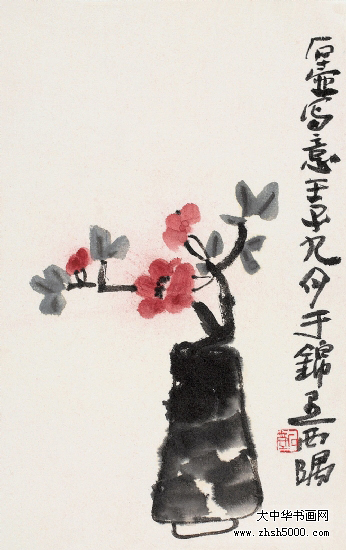 石壶写意壬子九月于锦里西隅
大中华书画网
www.zhsh5000.com